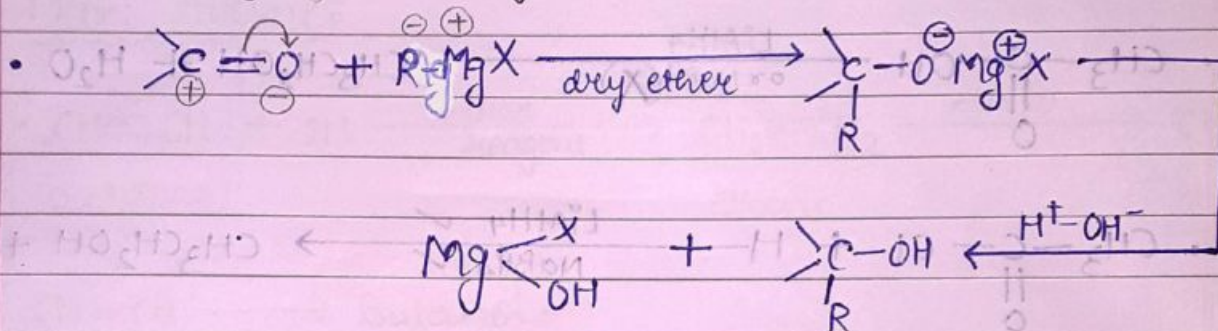 • >C=O + R-MgX dry ether → >C-O⊖ Mg⊕X
⊕ ⊖ ⊖ ⊕ R
Mg X OH + >C-OH ← H⁺-OH⁻
R